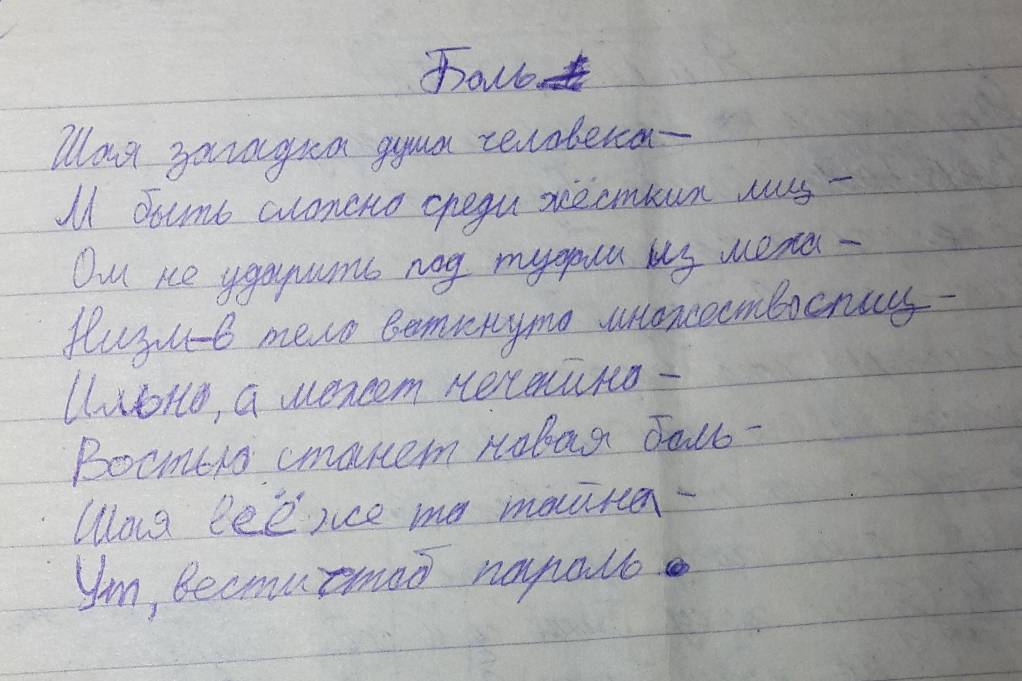 Боль
Шая загадка душа человека –
М быть сложно среди жёстких лиц –
Ом не ударить под туфли из меха –
Низм – в тело воткнуто множество спиц –
Ильно, а может нечайно –
Востью станет новая боль –
Шая всё же та тайна –
Ут, вести чтоб пароль.